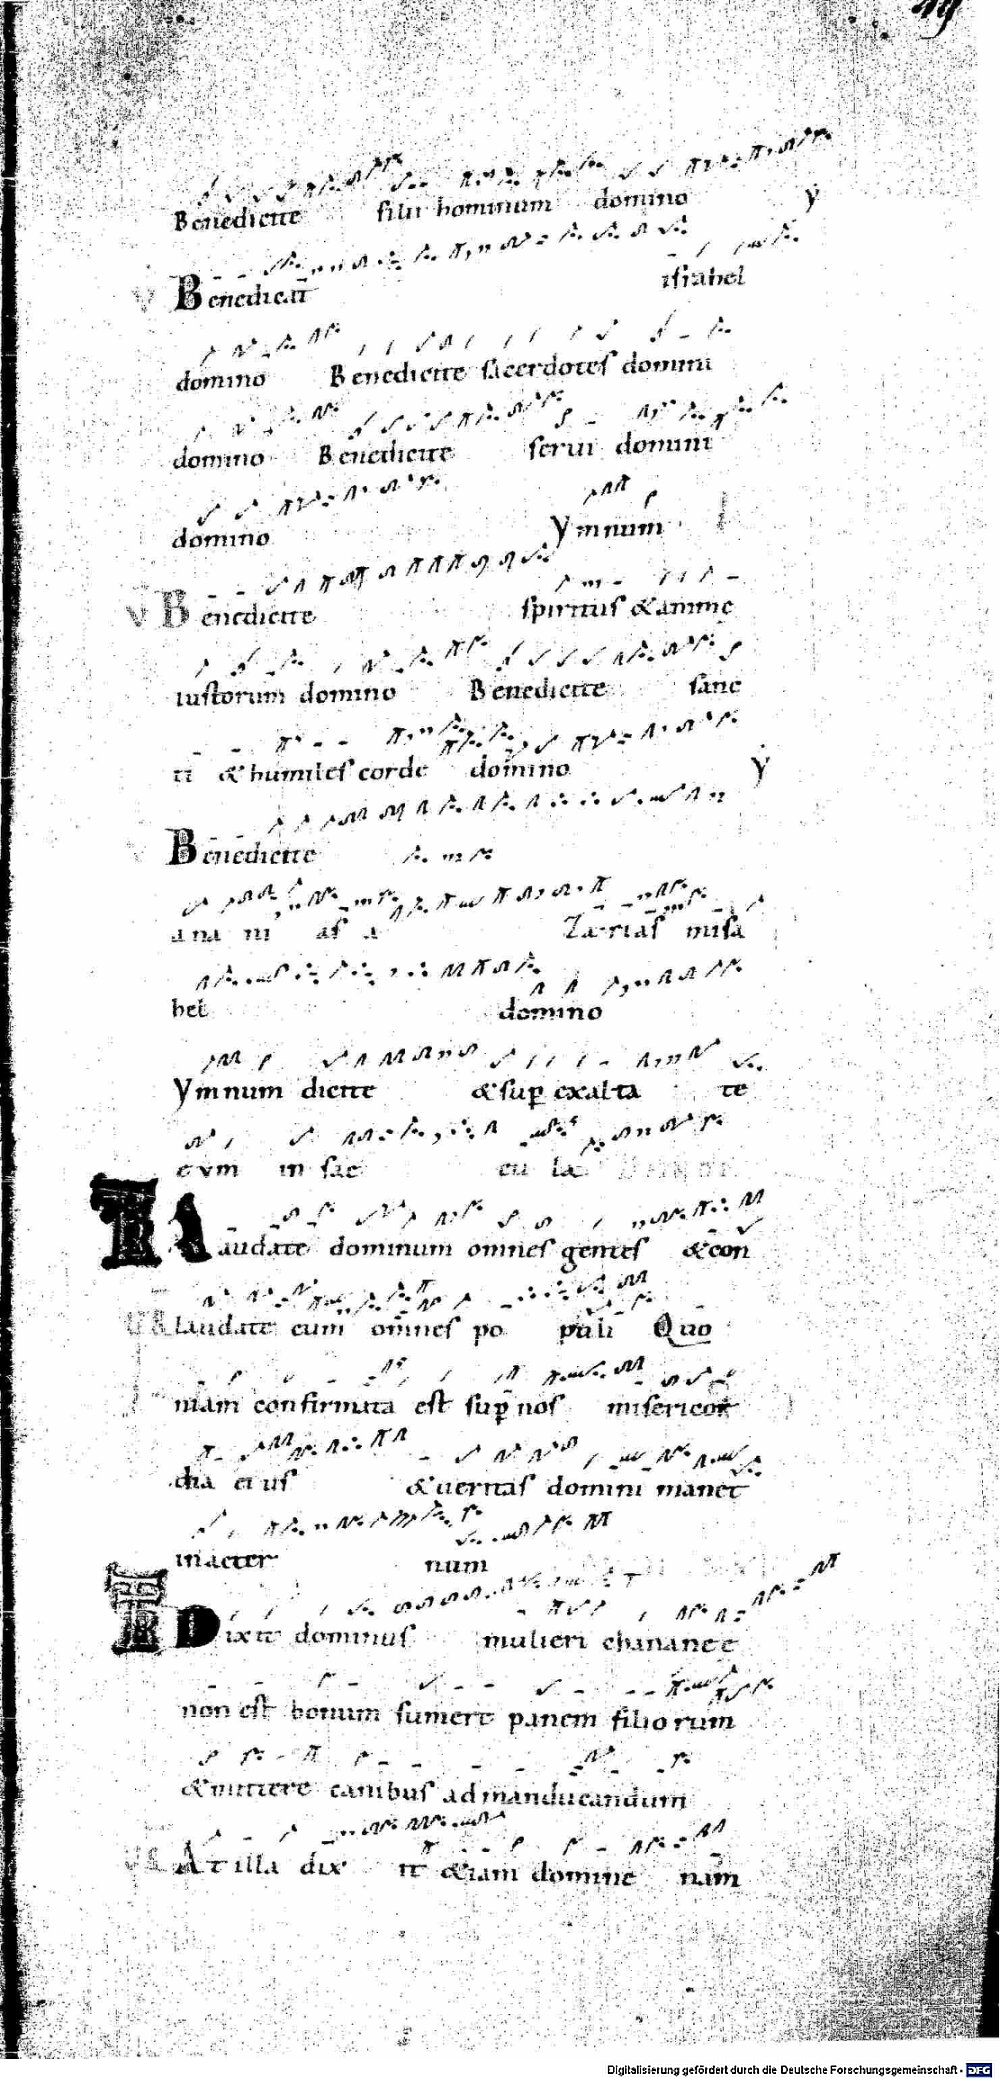 49
Benedicite filii hominum domino ẏ
V Benedicat israhel
domino Benedicite sacerdotes domini
domino Benedicite serui domini
domino Ymnum
V Benedicite spiritus & anime
iustorum domino Benedicite sanc
ti & humiles corde domino ẏ
Benedicite
ana ni as a Zarias misa
hel domino
Ymnum dicite & sup exalta te
eum in sae cu la
TR Laudate dominum omnes gentes & con
laudate eum omnes po puli Quo
niam confirmata est sup nos misericor
dia eius & ueritas domini manet
in aeter num
TR Dixit dominus mulieri chananee
non est bonum sumere panem filiorum
& mittere canibus ad manducandum
At illa dix it &iam domine nam
Digitalisierung gefördert durch die Deutsche Forschungsgemeinschaft - DFG